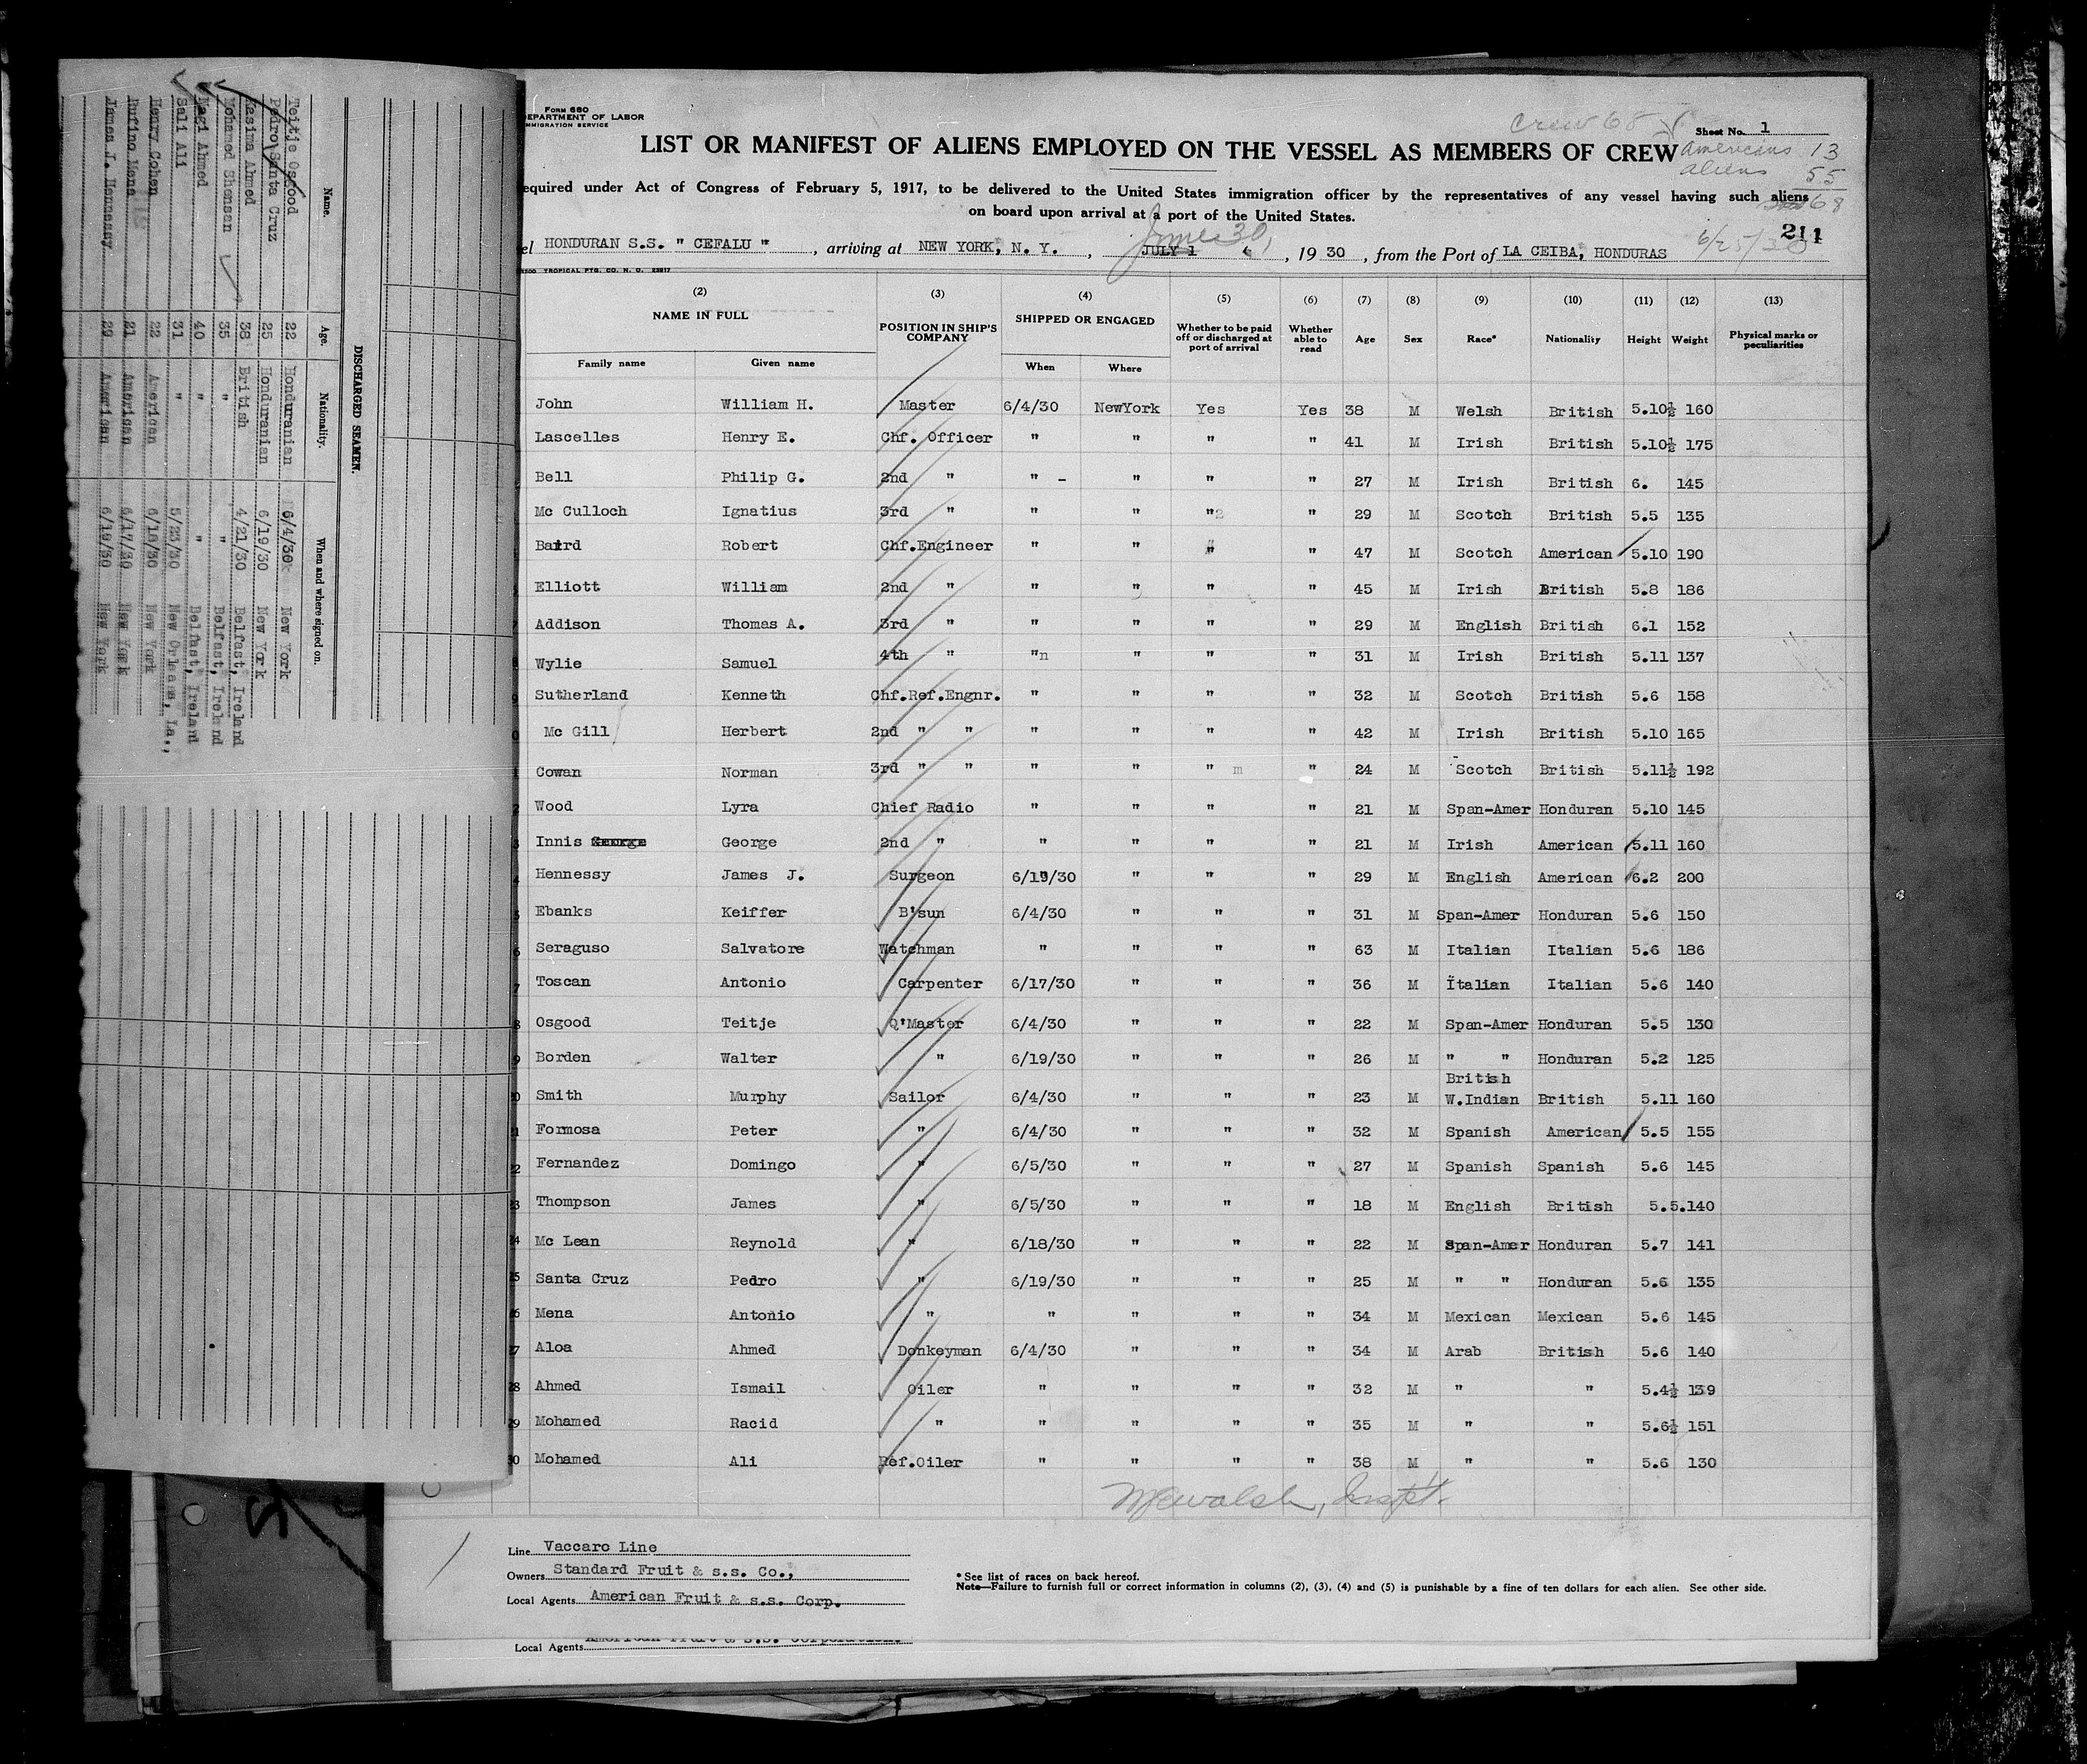 Form 680
DEPARTMENT OF LABOR
IMMIGRATION SERVICE
Crew 68
Sheet No. 1
LIST OR MANIFEST OF ALIENS EMPLOYED ON THE VESSEL AS MEMBERS OF CREW
Americans 13
aliens 55
68
equired under Act of Congress of February 5, 1917, to be delivered to the United States immigration officer by the representatives of any vessel having such aliens
on board upon arrival at a port of the United States.
211
June 30,
6/25/30
el HONDURAN S.S. " CEFALU " , arriving at NEW YORK, N. Y. , JULY 1 , 19 30 , from the Port of LA CEIBA, HONDURAS
TROPICAL PTG. CO. N. O.
(2) (3) (4) (5) (6) (7) (8) (9) (10) (11) (12) (13)
NAME IN FULL POSITION IN SHIP'S COMPANY SHIPPED OR ENGAGED Whether to be paid off or discharged at port of arrival Whether able to read Age Sex Race* Nationality Height Weight Physical marks or peculiarities
Family name Given name When Where
John William H. Master 6/4/30 NewYork Yes Yes 38 M Welsh British 5.10½ 160
Lascelles Henry E. Chf. Officer " " " " 41 M Irish British 5.10½ 175
Bell Philip G. 2nd " " - " " " 27 M Irish British 6. 145
Mc Culloch Ignatius 3rd " " " " " 29 M Scotch British 5.5 135
Baird Robert Chf.Engineer " " " " 47 M Scotch American 5.10 190
Elliott William 2nd " " " " " 45 M Irish British 5.8 186
Addison Thomas A. 3rd " " " " " 29 M English British 6.1 152
Wylie Samuel 4th " "n " " " 31 M Irish British 5.11 137
Sutherland Kenneth Chf.Ref.Engnr. " " " " 32 M Scotch British 5.6 158
Mc Gill Herbert 2nd " " " " " " 42 M Irish British 5.10 165
Cowan Norman 3rd " " " " " m " 24 M Scotch British 5.11½ 192
Wood Lyra Chief Radio " " " " 21 M Span-Amer Honduran 5.10 145
Innis George George 2nd " " " " " 21 M Irish American 5.11 160
Hennessy James J. Surgeon 6/19/30 " " " 29 M English American 6.2 200
Ebanks Keiffer B'sun 6/4/30 " " " 31 M Span-Amer Honduran 5.6 150
Seraguso Salvatore Watchman " " " " 63 M Italian Italian 5.6 186
Toscan Antonio Carpenter 6/17/30 " " " 36 M Italian Italian 5.6 140
Osgood Teitje Q'Master 6/4/30 " " " 22 M Span-Amer Honduran 5.5 130
Borden Walter " 6/19/30 " " " 26 M " " Honduran 5.2 125
Smith Murphy Sailor 6/4/30 " " " 23 M British W.Indian British 5.11 160
Formosa Peter " 6/4/30 " " " 32 M Spanish American 5.5 155
Fernandez Domingo " 6/5/30 " " " 27 M Spanish Spanish 5.6 145
Thompson James " 6/5/30 " " " 18 M English British 5.5.140
Mc Lean Reynold " 6/18/30 " " " 22 M Span-Amer Honduran 5.7 141
Santa Cruz Pedro " 6/19/30 " " " 25 M " " Honduran 5.6 135
Mena Antonio " " " " " 34 M Mexican Mexican 5.6 145
Aloa Ahmed Donkeyman 6/4/30 " " " 34 M Arab British 5.6 140
28 Ahmed Ismail Oiler " " " " 32 M " " 5.4½ 139
Mohamed Racid " " " " " 35 M " " 5.6½ 151
Mohamed Ali Ref.Oiler " " " " 38 M " " 5.6 130
Line Vaccaro Line
Owners Standard Fruit & s.s. Co.,
Local Agents American Fruit & s.s. Corp.
* See list of races on back hereof.
Note—Failure to furnish full or correct information in columns (2), (3), (4) and (5) is punishable by a fine of ten dollars for each alien. See other side.
Local Agents American Fruit & S.S. Corporation.
DISCHARGED SEAMEN.
Name. Age. Nationality. When and where signed on.
Teitje Osgood 22 Honduranian 6/4/30 New York
Pedro Santa Cruz 25 Honduranian 6/19/30 New York
Kasima Ahmed 38 British 4/21/30 Belfast, Ireland
Mohamed Shemsan 35 " " Belfast, Ireland
Nagi Ahmed 40 " " Belfast, Ireland
Sali Ali 31 " 5/23/30 New Orleans, La.,
Henry Cohen 22 American 6/18/30 New York
Rufino Mena 21 American 6/17/30 New York
James J. Hennessy 29 American 6/19/30 New York